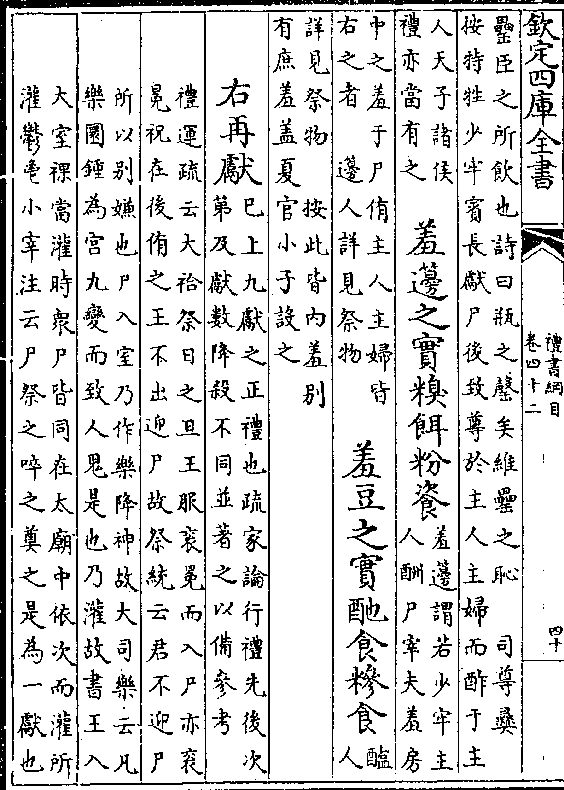 欽定四庫全書
禮書綱目
卷四十二
四十
罍臣之所飲也詩曰瓶之罄矣維罍之恥 司尊彝
按特牲少牢賓長獻尸後致尊於主人主婦而酢于主
人天子諸侯
禮亦當有之
羞籩之實糗餌粉餈
羞籩謂若少牢主
人酬尸宰夫羞房
中之羞于尸侑主人主婦皆
右之者 籩人詳見祭物
羞豆之實酏食糝食
醢
人
詳見祭物 按此皆内羞别
有庶羞盖夏官小子設之
右再獻
已上九獻之正禮也疏家論行禮先後次
第及獻數降殺不同並著之以備參考
禮運疏云大祫祭日之旦王服衮冕而入尸亦衮
冕祝在後侑之王不出迎尸故祭統云君不迎尸
所以别嫌也尸入室乃作樂降神故大司樂云凡
樂圜鍾為宫九變而致人鬼是也乃灌故書王入
大室祼當灌時衆尸皆同在太廟中依次而灌所
灌鬱鬯小宰注云尸祭之啐之奠之是為一獻也